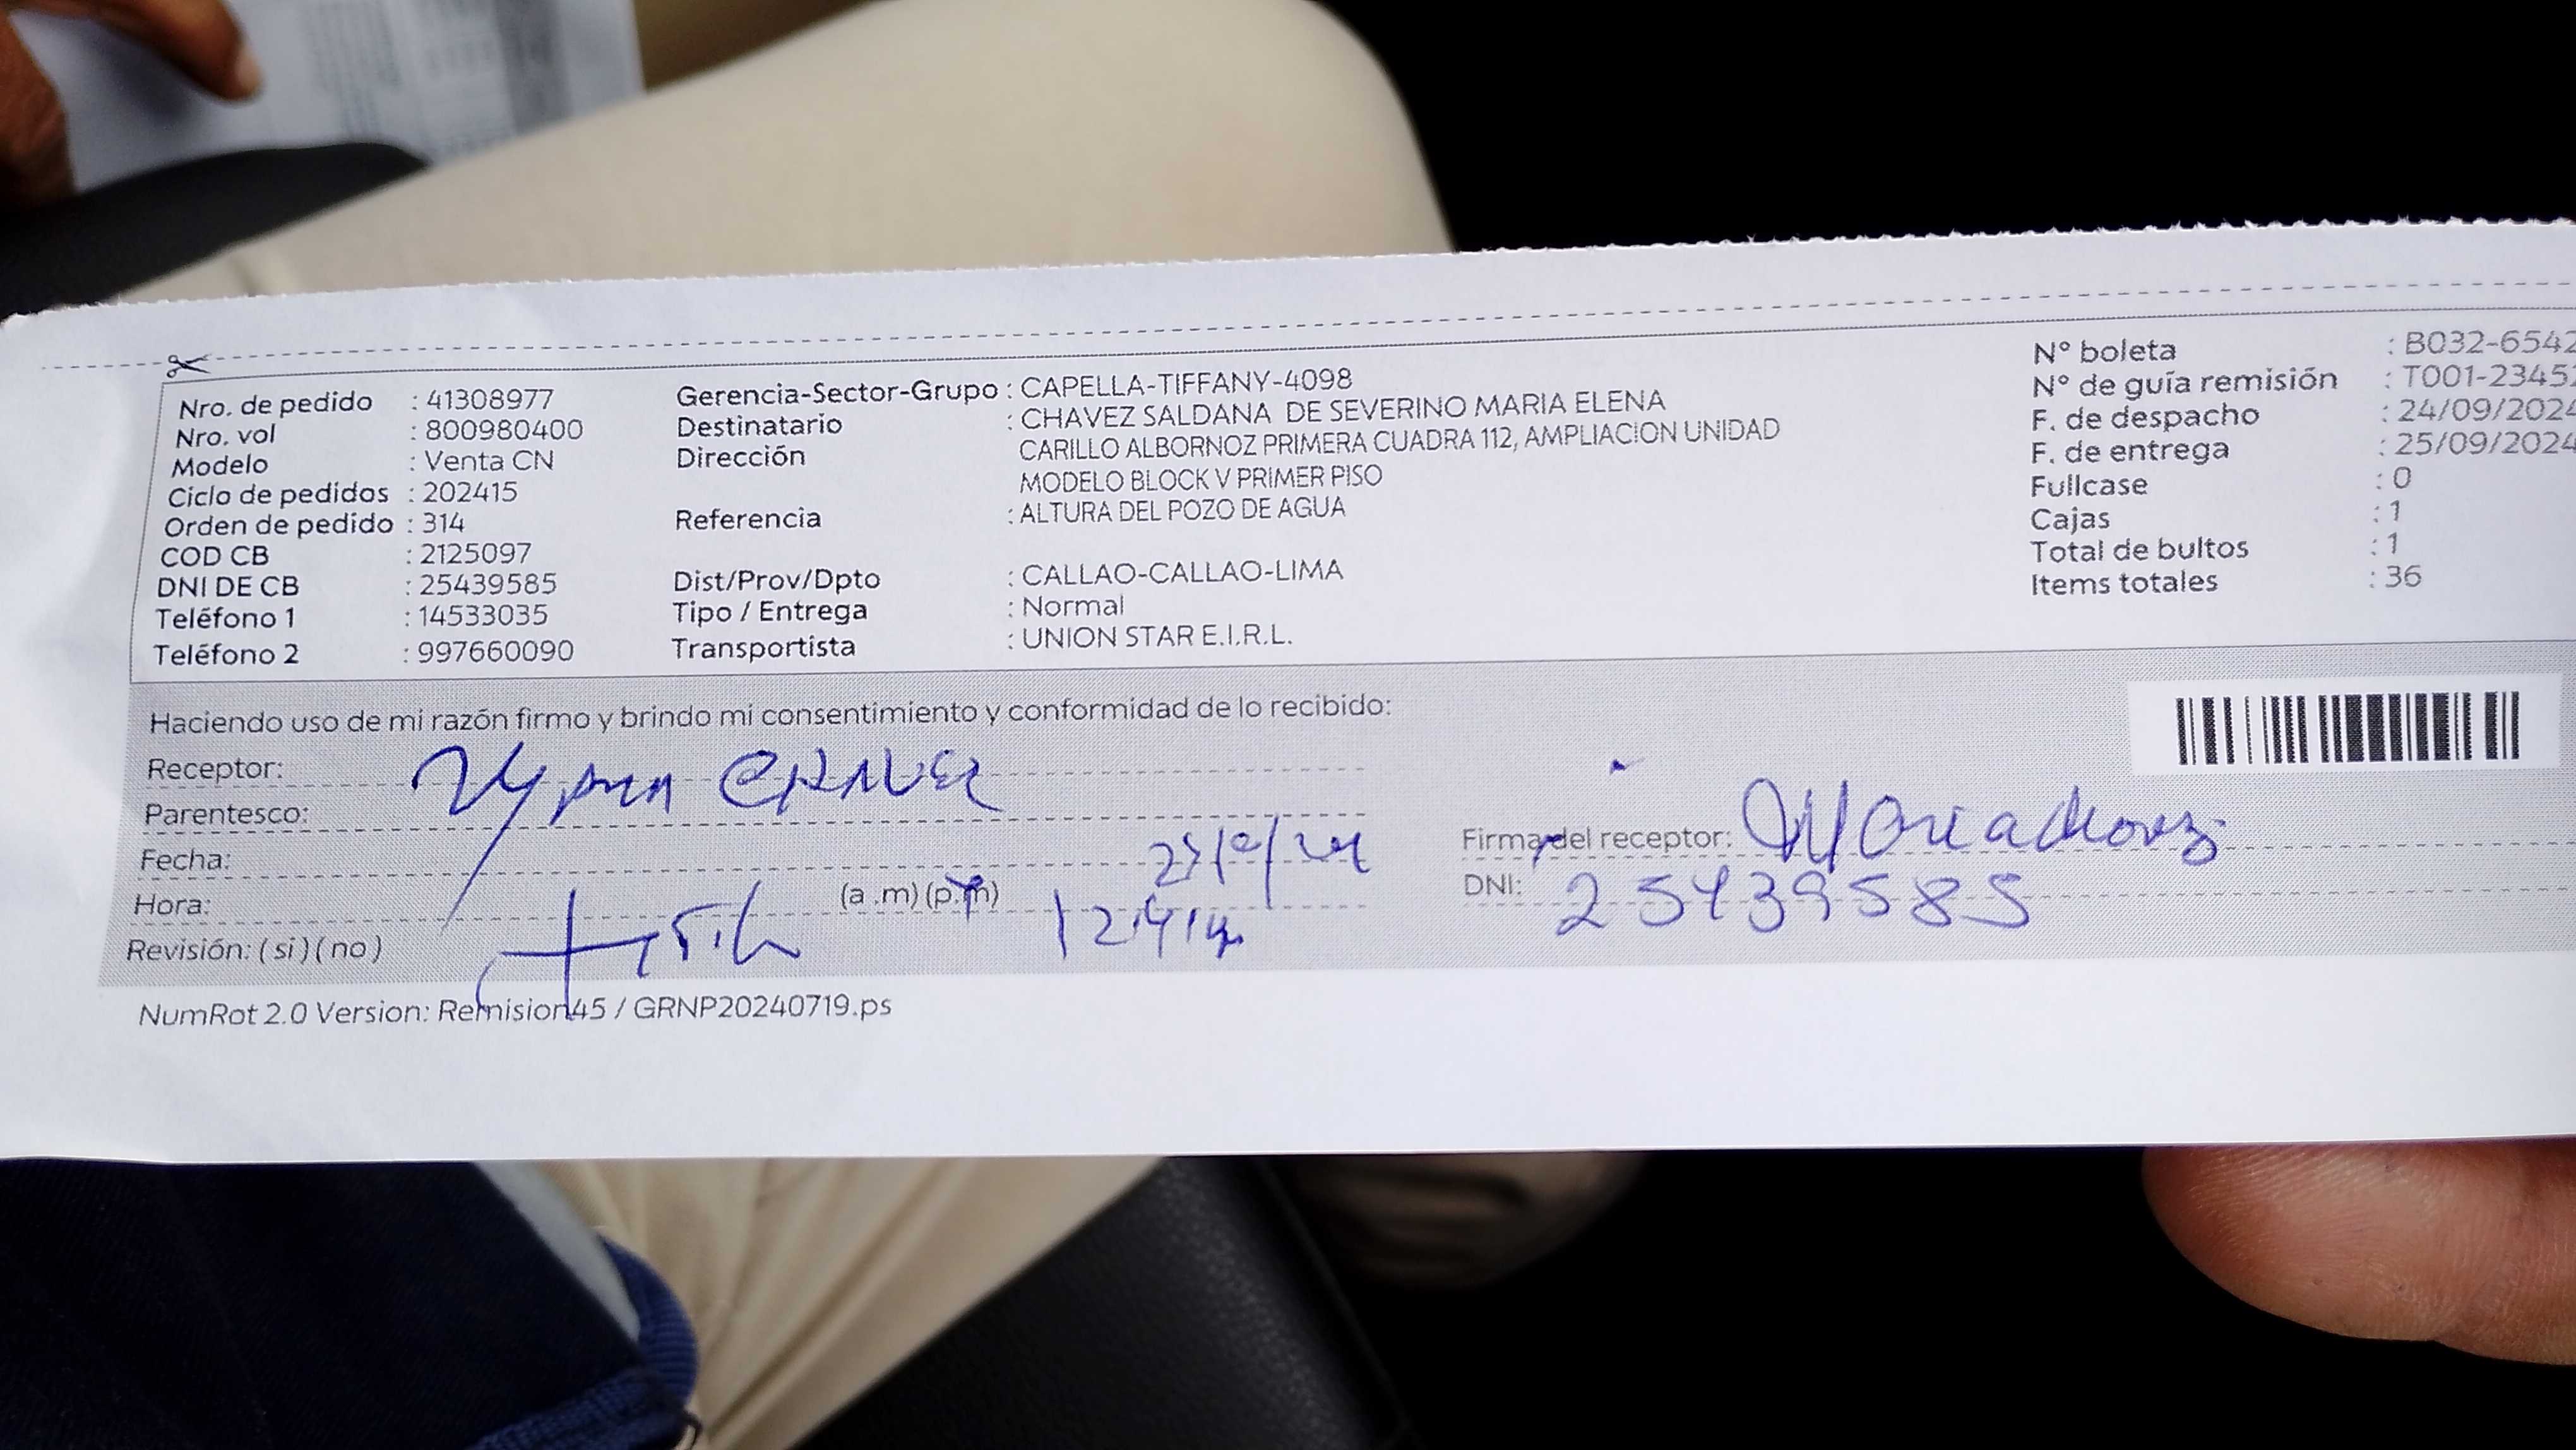 Nro. de pedido : 41308977
Nro. vol : 800980400
Modelo : Venta CN
Ciclo de pedidos : 202415
Orden de pedido : 314
COD CB : 2125097
DNI DE CB : 25439585
Teléfono 1 : 14533035
Teléfono 2 : 997660090
Gerencia-Sector-Grupo : CAPELLA-TIFFANY-4098
Destinatario : CHAVEZ SALDANA DE SEVERINO MARIA ELENA
Dirección CARILLO ALBORNOZ PRIMERA CUADRA 112, AMPLIACION UNIDAD
MODELO BLOCK V PRIMER PISO
Referencia : ALTURA DEL POZO DE AGUA
Dist/Prov/Dpto : CALLAO-CALLAO-LIMA
Tipo / Entrega : Normal
Transportista : UNION STAR E.I.R.L.
N° boleta : B032-6542
N° de guía remisión : T001-2345
F. de despacho : 24/09/2024
F. de entrega : 25/09/2024
Fullcase : 0
Cajas : 1
Total de bultos : 1
Items totales : 36
Haciendo uso de mi razón firmo y brindo mi consentimiento y conformidad de lo recibido:
Receptor:
Parentesco:
Fecha:
Hora: (a .m) (p.m)
Revisión: ( si ) ( no )
Firma del receptor:
DNI: 25439585
NumRot 2.0 Version: Remision45 / GRNP20240719.ps